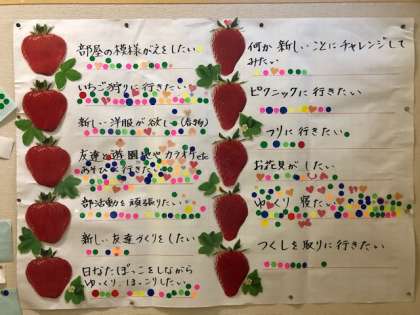 部屋の模様がえをしたい
いちご狩りに行きたい
新しい洋服が欲しい(春物)
友達と遊園地やカラオケetc
あそびに行きたい
部活動を頑張りたい
新しい友達づくりをしたい
日なたぼっこをしながら
ゆっくり、ほっこりしたい。
何か新しいことにチャレンジして
みたい
ピクニックに行きたい
つりに行きたい
お花見がしたい
ゆっくり寝たい
つくしを取りに行きたい